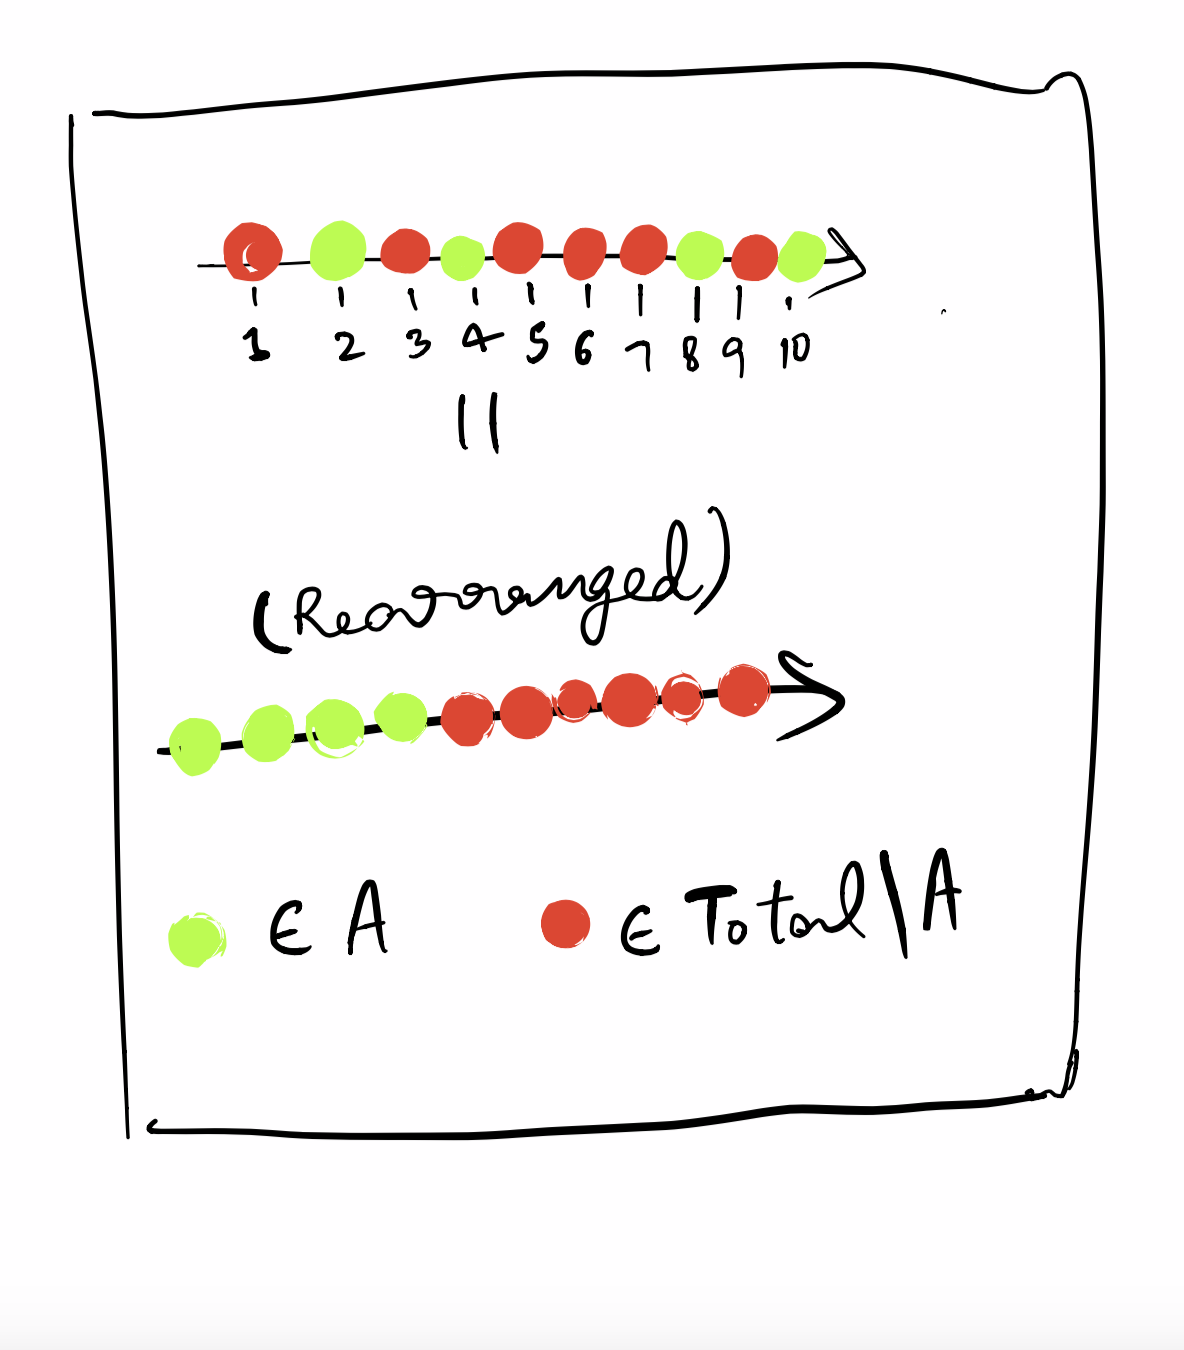 1 2 3 4 5 6 7 8 9 10
||
(Rearranged)
∈ A ∈ Total\A